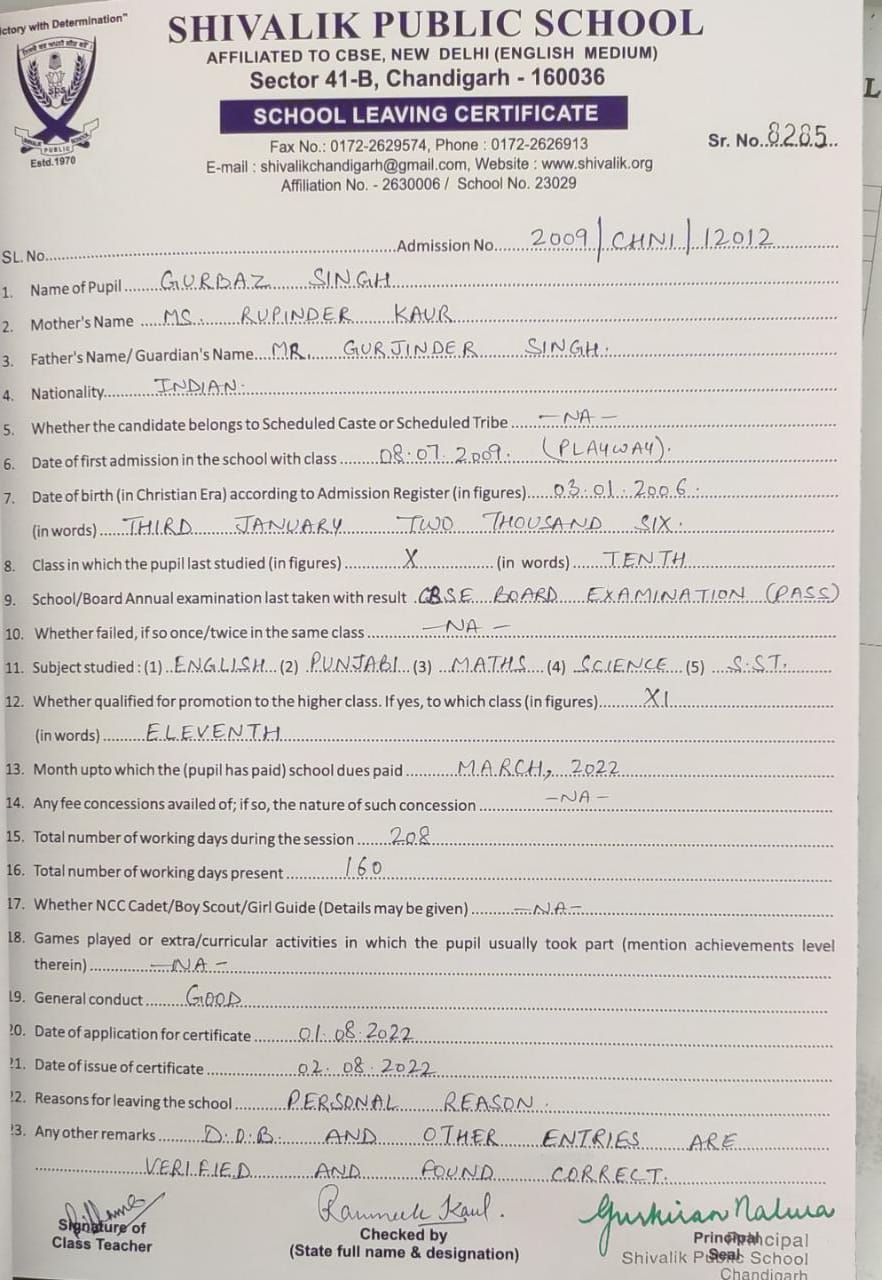 ctory with Determination"
SHIVALIK PUBLIC SCHOOL
AFFILIATED TO CBSE, NEW DELHI (ENGLISH MEDIUM)
Sector 41-B, Chandigarh - 160036
SCHOOL LEAVING CERTIFICATE
Fax No.: 0172-2629574, Phone : 0172-2626913
Sr. No. 8285
E-mail : shivalikchandigarh@gmail.com, Website : www.shivalik.org
Affiliation No. - 2630006 / School No. 23029
SPS
PUBLIC
Estd.1970
L
SL. No. Admission No. 2009/CHNI/12012
1. Name of Pupil GURBAZ SINGH
2. Mother's Name MS. RUPINDER KAUR
3. Father's Name/ Guardian's Name MR. GURJINDER SINGH.
4. Nationality INDIAN.
5. Whether the candidate belongs to Scheduled Caste or Scheduled Tribe -NA-
6. Date of first admission in the school with class 08.07.2009. (PLAYWAY).
7. Date of birth (in Christian Era) according to Admission Register (in figures) 03.01.2006.
(in words) THIRD JANUARY TWO THOUSAND SIX.
8. Class in which the pupil last studied (in figures) X (in words) TENTH
9. School/Board Annual examination last taken with result CBSE BOARD EXAMINATION (PASS)
10. Whether failed, if so once/twice in the same class -NA-
11. Subject studied : (1) ENGLISH (2) PUNJABI (3) MATHS (4) SCIENCE (5) S.ST.
12. Whether qualified for promotion to the higher class. If yes, to which class (in figures) XI
(in words) ELEVENTH
13. Month upto which the (pupil has paid) school dues paid MARCH, 2022
14. Any fee concessions availed of; if so, the nature of such concession -NA-
15. Total number of working days during the session 208
16. Total number of working days present 160
17. Whether NCC Cadet/Boy Scout/Girl Guide (Details may be given) -NA-
18. Games played or extra/curricular activities in which the pupil usually took part (mention achievements level
therein) -NA-
19. General conduct GOOD
20. Date of application for certificate 01.08.2022
21. Date of issue of certificate 02.08.2022
22. Reasons for leaving the school PERSONAL REASON.
23. Any other remarks D.O.B. AND OTHER ENTRIES ARE
VERIFIED AND FOUND CORRECT.
Signature of
Class Teacher
Ranmeek Kaul.
Checked by
(State full name & designation)
Gurkiran Nalwa
Principal
Principal
Seal
Shivalik Public School
Chandigarh